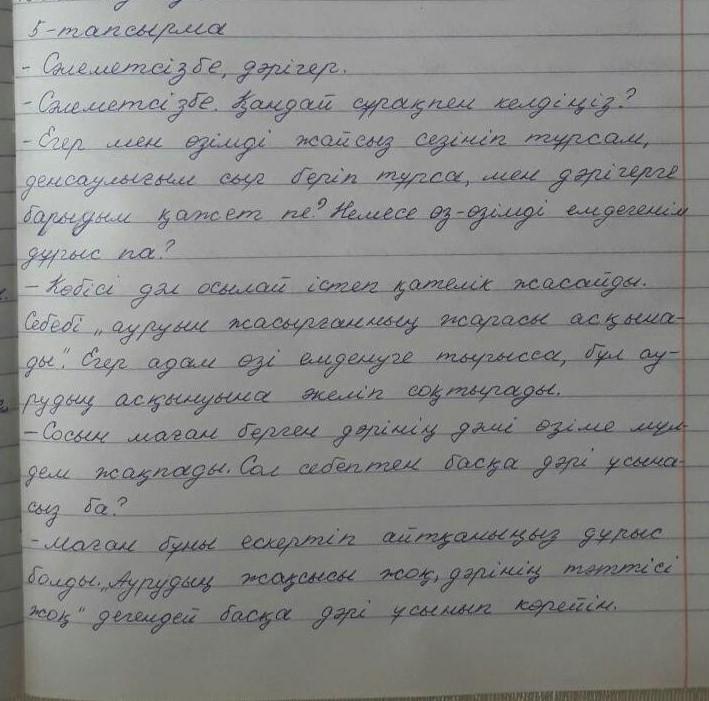 5-тапсырма
- Сәлеметсізбе, дәрігер.
- Сәлеметсізбе. Қандай сұрақпен келдіңіз?
- Егер мен өзімді жайсыз сезініп тұрсам,
денсаулығым сыр беріп тұрса, мен дәрігерге
баруым қажет пе? Немесе өз-өзімді емдегенім
дұрыс па?
- Көбісі дәл осылай істеп қателік жасайды.
Себебі „ауруын жасырғанның жарасы асқына-
ды". Егер адам өзі емденуге тырысса, бұл ау-
рудың асқынуына әкеліп соқтырады.
- Сосын маған берген дәрінің дәмі өзіме мүл-
дем жақпады. Сол себептен басқа дәрі ұсына-
сыз ба?
- Маған бұны ескертіп айтқаныңыз дұрыс
болды. „Аурудың жақсысы жоқ, дәрінің тәттісі
жоқ" дегендей басқа дәрі ұсынып көрейін.